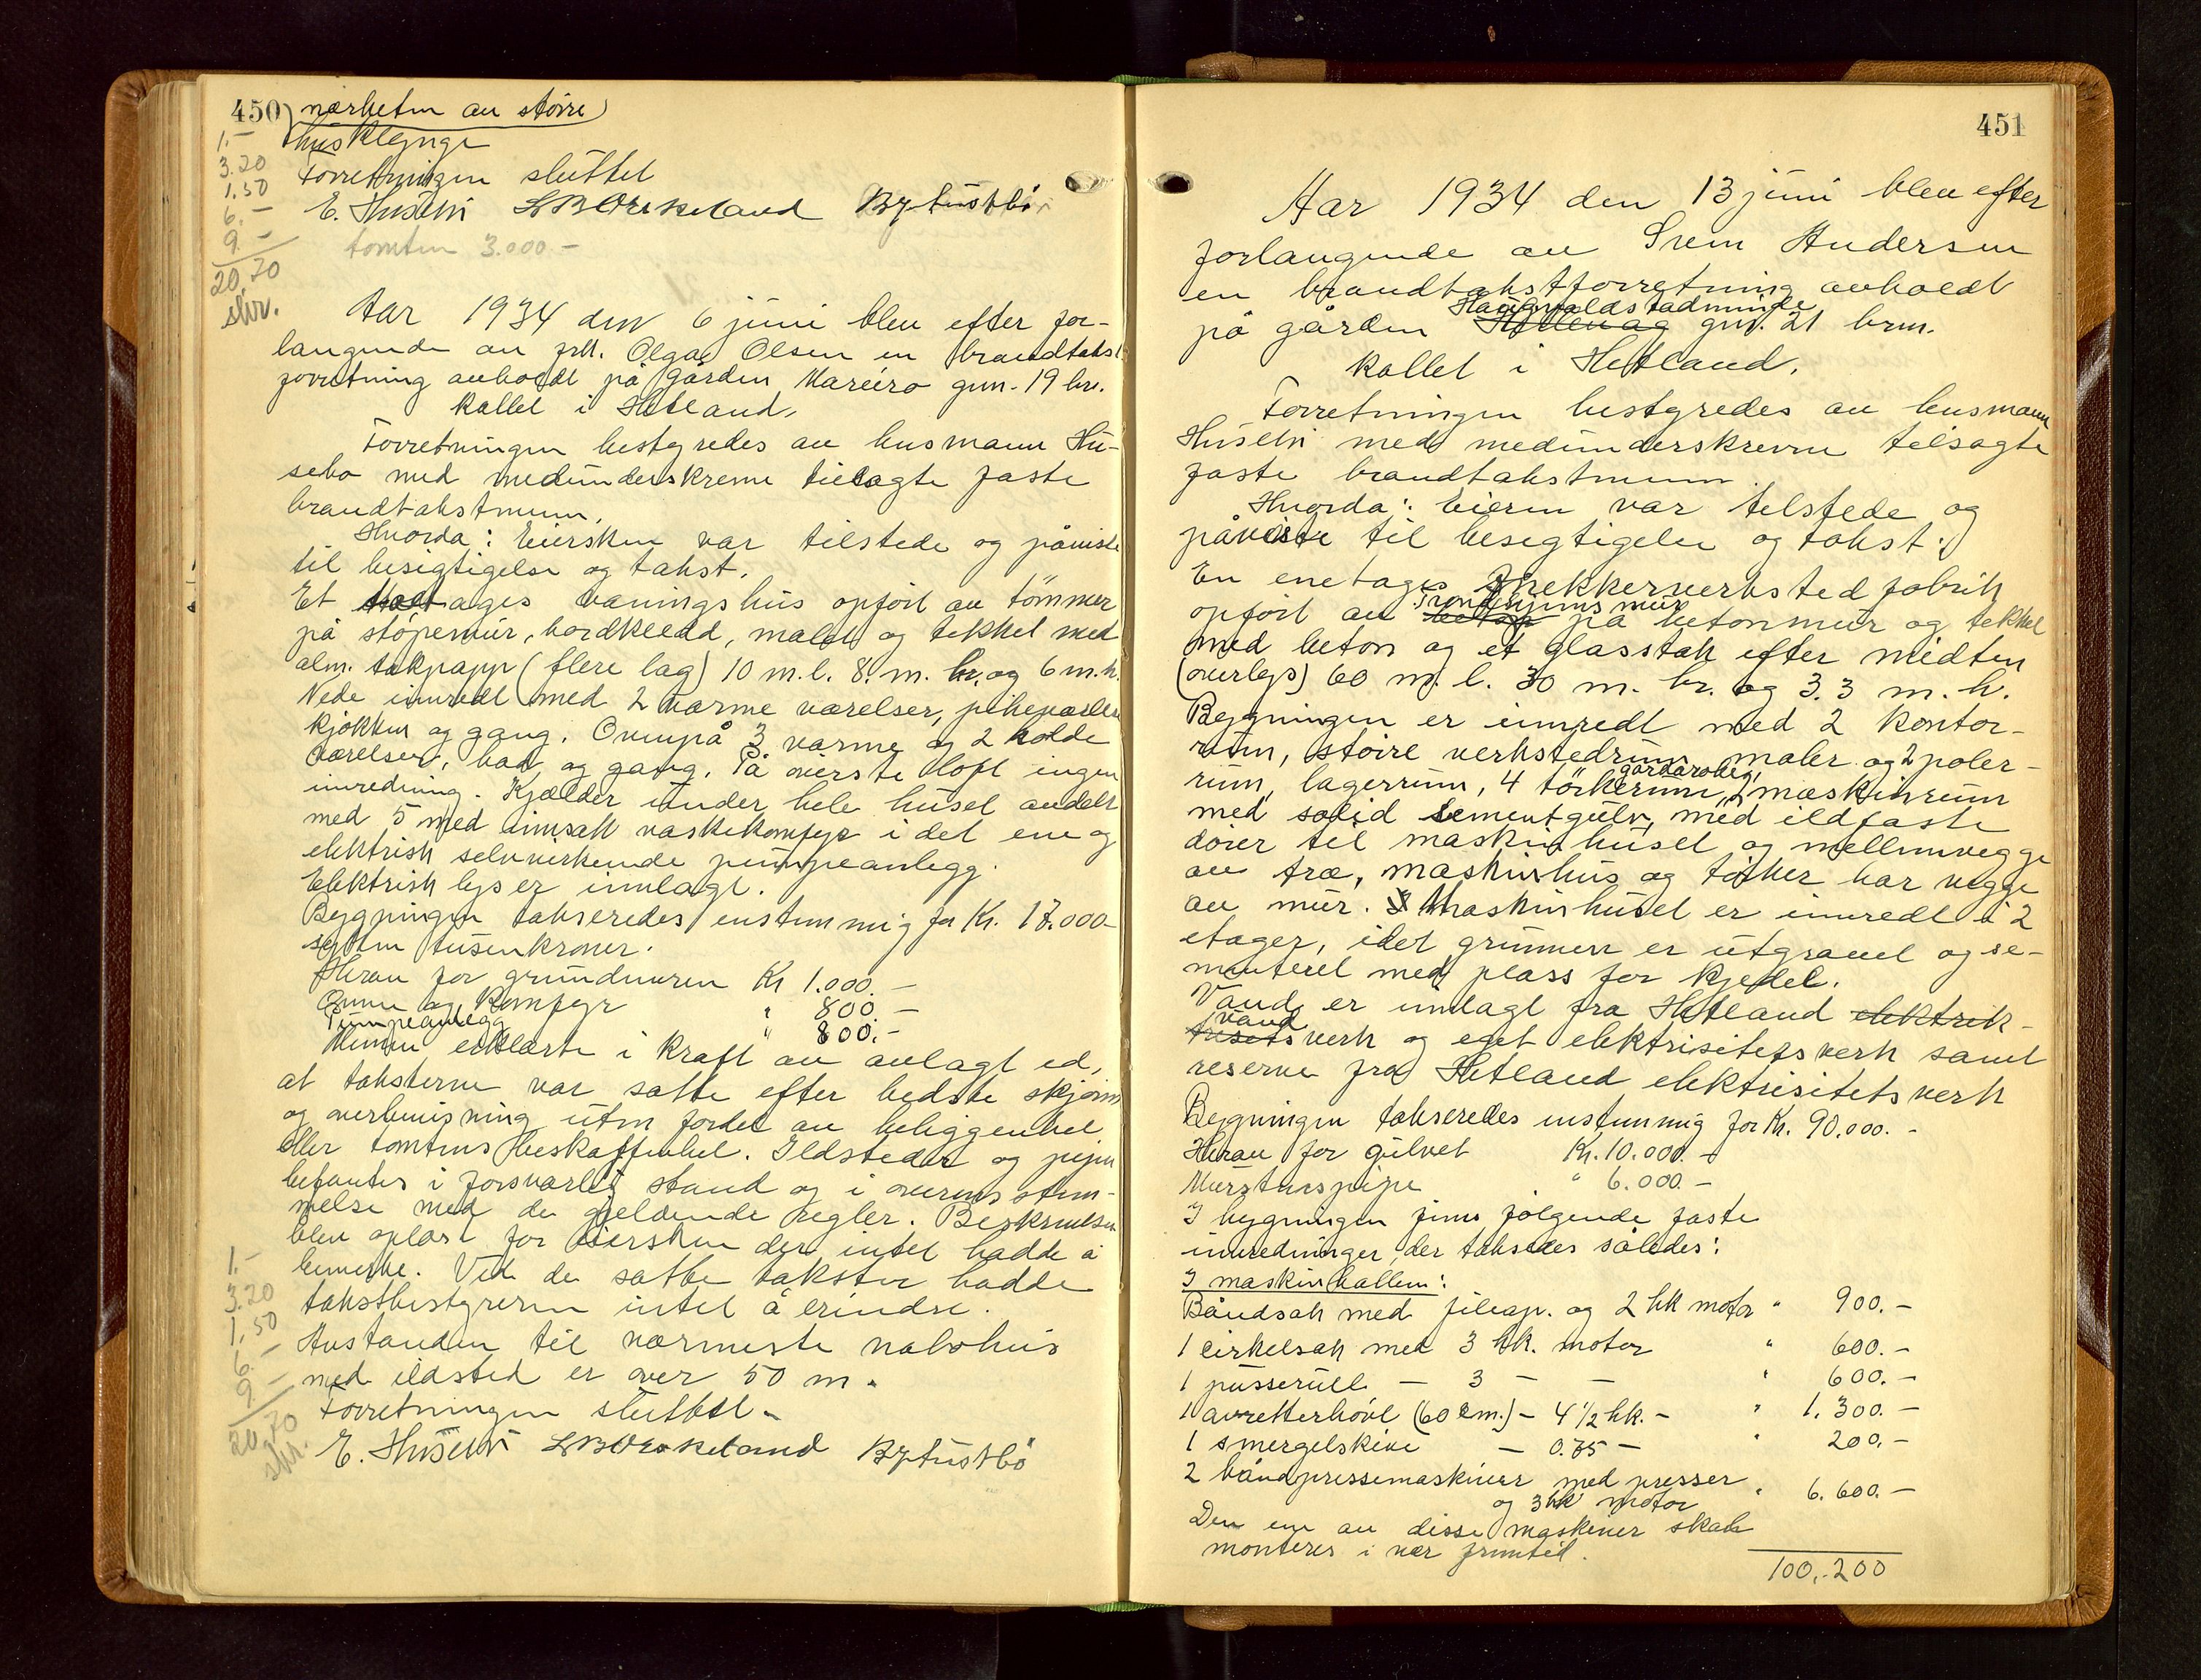 450 nærheten av større
husklynge
Forretningen sluttet
E. Husebö LBOrekeland By. Austbö
tomten 3.000 -
1.-
3.20
1.50
6.-
9.-
20,70
skr.
Aar 1934 den 6 juni blev efter for-
langende av frk. Olga Olsen en brandtakst
forretning avholdt på gården Mariero gnr. 19 brn.
kallet i Hetland.
Forretningen bestyredes av lensmann Hu-
sebø med medunderskrevne tilsagte faste
brandtakstmenn.
Hvorda: Eiersken var tilstede og påviste
til besigtigelse og takst.
Et etages våningshus opført av tømmer
på støpemur, bordkledd, malet og tekket med
alm. takpapp (flere lag) 10 m.l. 8. m. br. og 6 m.h.
Nede innredt med 2 varme værelser, pikeværelse
kjøkken og gang. Ovenpå 3 varme og 2 kolde
værelser, bad og gang. På øverste loft ingen
innredning. Kjælder under hele huset avdelt
med 5 med innsatt vaskekomfyr i det ene og
elektrisk selvvirkende pumpeanlegg.
Elektrisk lys er innlagt.
Bygningen takseredes enstemmig for Kr. 17.000-
sytten tusenkroner.
Herav for grundmuren Kr 1.000.-
Ovner og komfyr " 800.-
Pumpeanlegg " 800.-
Mennene erklærte i kraft av avlagt ed,
at taksterne var satte efter bedste skjønn
og overbevisning uten fordel av beliggenhet
eller tomtens beskaffenhet. Ildsteder og piper
befantes i forsvarlig stand og i overensstem-
melse med de gjeldende regler. Beskrivelsen
blev oplæst for eiersken der intet hadde å
bemerke. Ved de satte takster hadde
takstbestyreren intet å erindre.
Avstanden til nærmeste nabohus
med ildsted er over 50 m.
Forretningen sluttet.
E. Husebö LBOrekeland By. Austbö
1.-
3.20
1.50
6.-
9.-
20,70
skr.
451
Aar 1934 den 13 juni blev efter
forlangende av Svem Andersen
en brandtakstforretning avholdt
Haugvaldstadminde
på gården gnr. 21 brn.
kallet i Hetland.
Forretningen bestyredes av lensmann
Husebö med medunderskrevne tilsagte
faste brandtakstmenn.
Hvorda: Eieren var tilstede og
påviste til besegtigelse og takst:
En enetages snekkerverksted fabrik
Trondhjems mur
opført av beton på betonmur og tekket
med beton og et glasstak efter midten
(overlys) 60 m. l. 30 m. br. og 3.3 m. h.
Bygningen er innredt med 2 kontor-
rum, større verkstedrum, maler og 2 poler-
garderober,
rum, lagerrum, 4 tørkerum, 2 maskinrum
med solid sementgulv, med ildfaste
dører til maskinhuset og mellemvegge
av træ, maskinhus og tørker har vegge
av mur. Maskinhuset er innredt i 2
etager, idet grunnen er utgravet og se-
menteret med plass for kjedel.
Vand er innlagt fra Hetland elektrik-
vand
trisets verk og eget elektrisitetsverk samt
reserve fra Hetland elektrisitetsverk
Bygningen takseredes enstemmig for Kr. 90.000.-
Herav for gulvet Kr. 10.000.-
Murstenspipe " 6.000.-
I bygningen finns følgende faste
innredninger, der takstes således:
I maskinhallen:
Båndsak med fileap. og 2 hk motor " 900.-
1 cirkelsak med 3 hk. motor " 600.-
1 pusserull - 3 - - " 600.-
1 avretterhøvl (60 cm.) - 4 1/2 hk. - " 1.300.-
1 smergelskive - 0.75 - " 200.-
2 båndpressemaskiner med presser
og 3 hk motor " 6.600.-
Den ene av disse maskiner skal
monteres i nær fremtid.
100.200